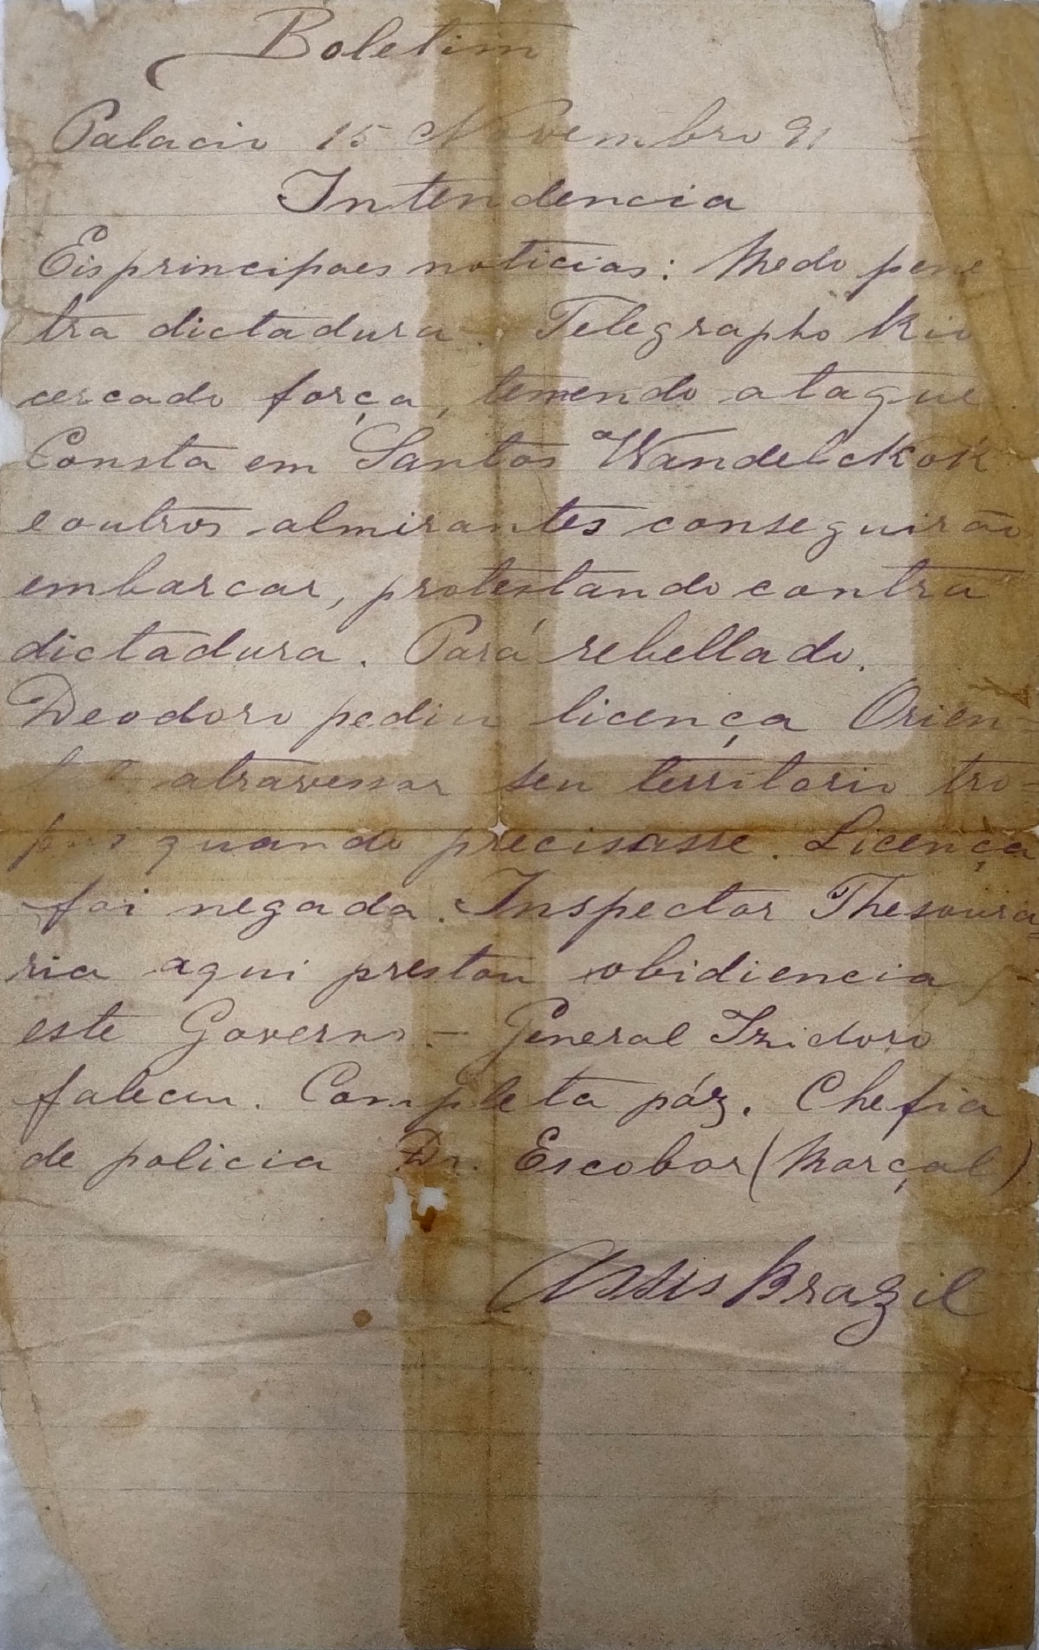 Boletim
Palacio 15 Novembro 91
Intendencia
Eis principaes noticias: Medo pene
tra dictadura. Telegrapho Rio
cercado força, temendo ataque
Consta em Santos Wandelckok
e outros almirantes conseguirão
embarcar, protestando contra
dictadura. Pará rebellado.
Deodoro pediu licença Orien-
atravessar seu territorio tro-
quando precisasse. Licença
foi negada. Inspector Thesoura
ria aqui prestou obidiencia
este Governo - General Izidoro
faleceu. Completa páz. Chefia
de policia Dr. Escobar (Marçal)
Assis Brazil